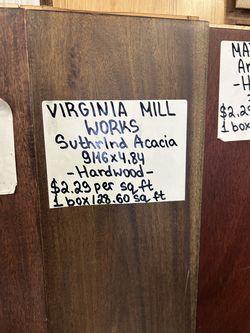 VIRGINIA MILL
WORKS
Suthrlnd Acacia
9/16x4.84
-Hardwood-
$2.29 per sq ft
1 box/28.60 sq ft
MA
Ar
-H
$2.29
1 box